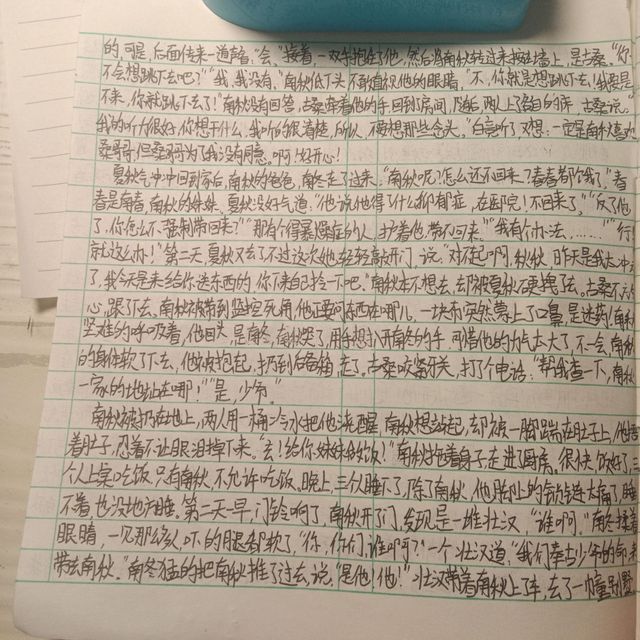 的,可是,后面传来一道声音,“会。”接着,一双手抱住了他,然后将南秋转过来按在墙上,是古桑。“你
不会想跳下去吧?”“我,我没有。”南秋低下头不敢直视他的眼睛,“不,你就是想跳下去,我要是
不来,你就跳下去了!”南秋没有回答,古桑牵着他的手回到房间,随后两人了各自的床,古桑说:“
我的听力很好,你想干什么,我听的很清楚,所以,不要想那些念头。”白言听了又想:一定是南秋喜欢
桑哥哥,但桑哥为了我没有同意。啊!好开心!
夏秋气冲冲回到家后,南秋的爸爸,南冬走了过来,“南秋呢?怎么还不回来?春春都饿了。”春
春是南春,南秋的妹妹,夏秋没好气道:“他说他得了什么抑郁症,在医院!不回来了。”“反了他
了,你怎么不强制带回来?”“那有个很暴燥的人,护着他,带不回来。”“我有个办法……”“行!
就这么办!”第二天,夏秋又去了,不过这次她轻轻敲开门,说:“对不起啊,秋秋,昨天是我太冲
了,我今天是来给你送东西的,你下来自己拎一下吧。”南秋本不想去,却被夏秋硬拽了去。古桑不放
心,跟了下去,南秋被带到监控死角,他正要问东西在哪儿,一块布突然蒙上了口鼻,是迷药!南秋
坚难的呼吸着,他回头,是南冬,南秋哭了,用手想扒开南冬的手,可惜他的力气太大了,不一会,南秋
的身体软了下去,他被抱起,扔到后备箱,走了,古桑咬紧牙关,打了个电话:“帮我查一下,南秋
一家的地址在哪!”“是,少爷。”
南秋被扔在地上,两人用一桶冷水把他浇醒,南秋想站起,却被一脚踹在肚子上,他捂
着肚子,忍着不让眼泪掉下来。“去!给你妹妹做饭!”南秋拖着身子走进厨房。很快,饭好了,三
个人上桌吃饭,只有南秋,不允许吃饭。晚上,三个人睡下了,除了南秋,他脚上的铃链太痛了,睡
不着,也没地方睡。第二天一早,门铃响了,南秋开了门,发现是一堆壮汉,“谁啊。”南冬揉着
眼睛,一见那么多人,吓的腿都软了,“你,你们,谁啊?”一个壮汉道:“我们奉古少爷的命来
带走南秋。”南冬猛的把南秋推了过去,说:“是他!他!”壮汉带着南秋上车,去了一幢别墅